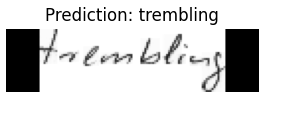 Prediction: trembling
trembling